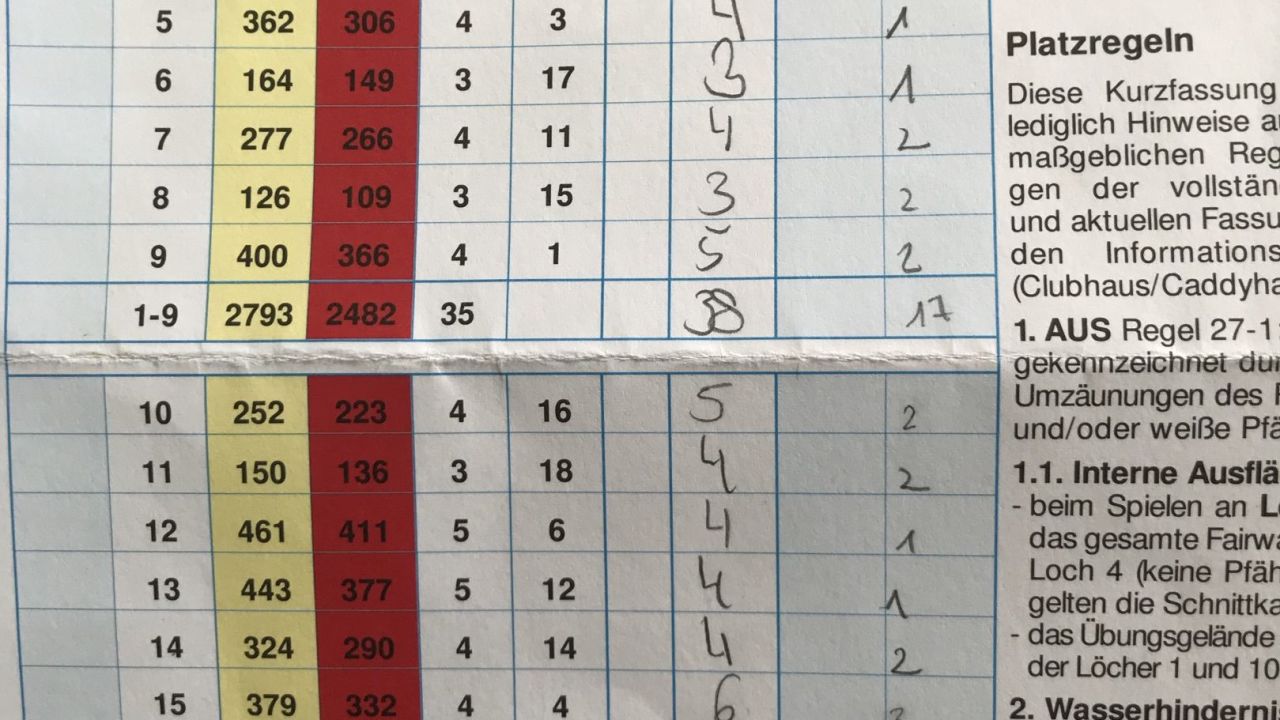 5 362 306 4 3 4 1
6 164 149 3 17 3 1
7 277 266 4 11 4 2
8 126 109 3 15 3 2
9 400 366 4 1 5 2
1-9 2793 2482 35 38 17
10 252 223 4 16 5 2
11 150 136 3 18 4 2
12 461 411 5 6 4 1
13 443 377 5 12 4 1
14 324 290 4 14 4 2
15 379 332 4 4 6
Platzregeln
Diese Kurzfassung
lediglich Hinweise
maßgeblichen Reg
gen der vollstän
und aktuellen Fassu
den Informations
(Clubhaus/Caddyha
1. AUS Regel 27-1
gekennzeichnet dur
Umzäunungen des
und/oder weiße Pfä
1.1. Interne Ausflä
- beim Spielen an
das gesamte Fairwa
Loch 4 (keine Pfäh
gelten die Schnittka
- das Übungsgelände
der Löcher 1 und 10
2. Wasserhinderni